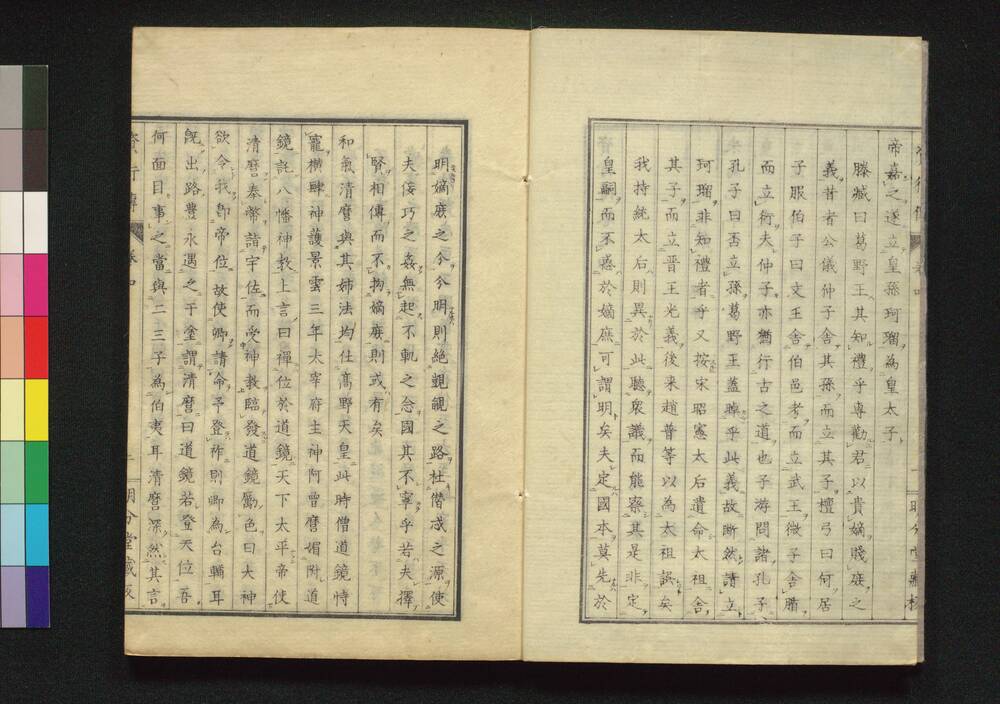 帝嘉之遂立皇孫珂瑠為皇太子
滕臧曰葛野王其知禮乎専勸君以貴嫡賤庶之
義昔者公儀仲子舍其孫而立其子檀弓曰何居
子服伯子曰文王舍伯邑考而立武王微子舍腯
而立衍夫仲子亦猶行古之道也子游問諸孔子
孔子曰否立孫葛野王蓋踔乎此義故断然請立
珂瑠非知禮者乎又按宋昭憲太后遺命太祖舍
其子而立晋王光義後来趙普等以為太祖誤矣
我持統太后則異於此聽衆議而能察其是非定
皇嗣而不惑於嫡庶可謂明矣夫定國本莫先於
明嫡庶之分分明則絶覬覦之路杜僭成之源使
夫佞巧之姦無起不軌之念國其不寧乎若夫擇
賢相傳而不拘嫡庶則或有矣
和氣清麿與其姉法均仕髙野天皇此時僧道鏡恃
寵横肆神護景雲三年大宰府主神阿曾麿媚附道
鏡託八幡神教上言曰禪位於道鏡天下太平帝使
清麿奉幣詣宇佐而受神教臨發道鏡勵色曰大神
欲令我即帝位故使卿請命予登祚則卿為台輔耳
既出路豊永遇之于塗謂清麿曰道鏡若登天位吾
何面目事之當與二三子為伯夷耳清麿深然其言
明分堂蔵板